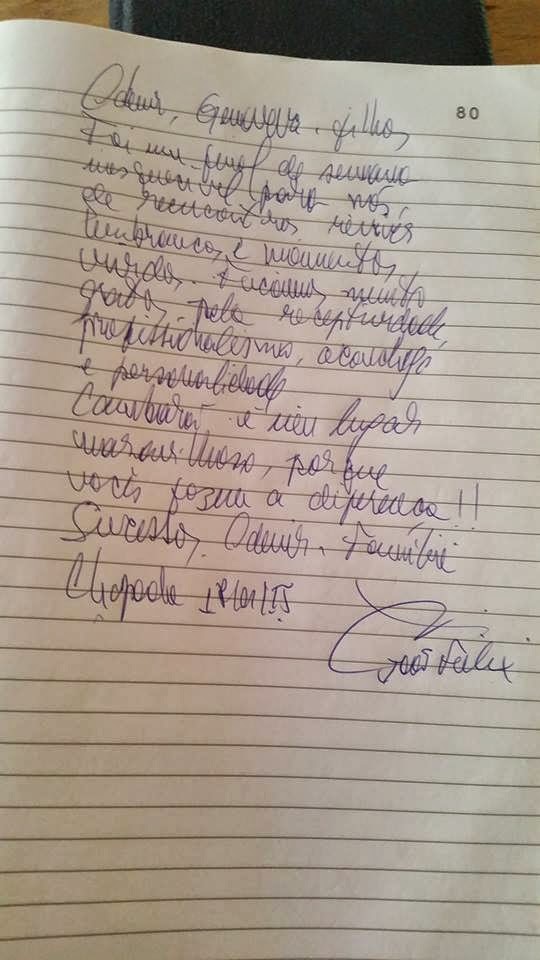 80
Odemir, Genoveva. filhos,
Foi um final de semana
inesquecível para nós,
de reencontros
lembranças, e momentos,
vividos. Ficamos muito
gratos, pela receptividade,
profissionalismo, aconchego
e personalidade
é um lugar
maravilhoso, porque
vocês fazem a diferença!!
Sucesso, Odemir. Família
Chapada
João Felix